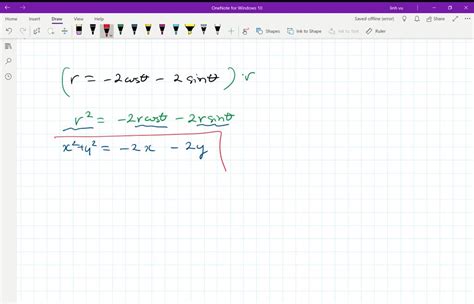 OneNote for Windows 10
linh vu
Home Insert Draw View Help Saved offline (error) Share
Shapes Ink to Shape Ink to Text Math
(r = -2cosθ - 2sinθ)·r
r² = -2rcosθ - 2rsinθ
x²+y² = -2x - 2y